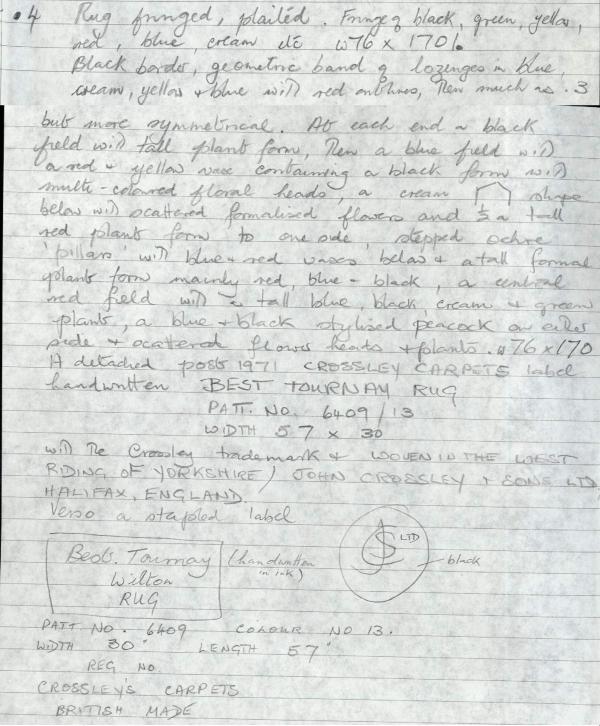 .4 Rug fringed, plaited. Fringe of black, green, yellow,
red, blue, cream etc w76 x 170l.
Black border, geometric band of lozenges in blue,
cream, yellow + blue with red outlines, then much as .3
but more symmetrical. At each end a black
field with tall plant form, then a blue field with
a red + yellow vase containing a black form with
multi-coloured floral heads, a cream shape
below with scattered formalised flowers and ½ a tall
red plant form to one side, stepped ochre
'pillars' with blue + red vases below + a tall formal
plant form mainly red, blue + black, a central
red field with tall blue, black, cream + green
plants, a blue + black stylised peacock on either
side + scattered flower heads + plants. w76 x 170
A detached post 1971 CROSSLEY CARPETS label
handwritten BEST TOURNAY RUG
PATT. NO. 6409/13
WIDTH 57 x 30
with the Crossley trademark + WOVEN IN THE WEST
RIDING OF YORKSHIRE / JOHN CROSSLEY + SONS LTD,
HALIFAX, ENGLAND.
Verso a stapled label
Best. Tournay (handwritten
in ink)
Wilton
RUG
LTD
black
PATT NO. 6409 COLOUR NO 13.
WIDTH 30" LENGTH 57"
REG NO
CROSSLEY'S CARPETS
BRITISH MADE